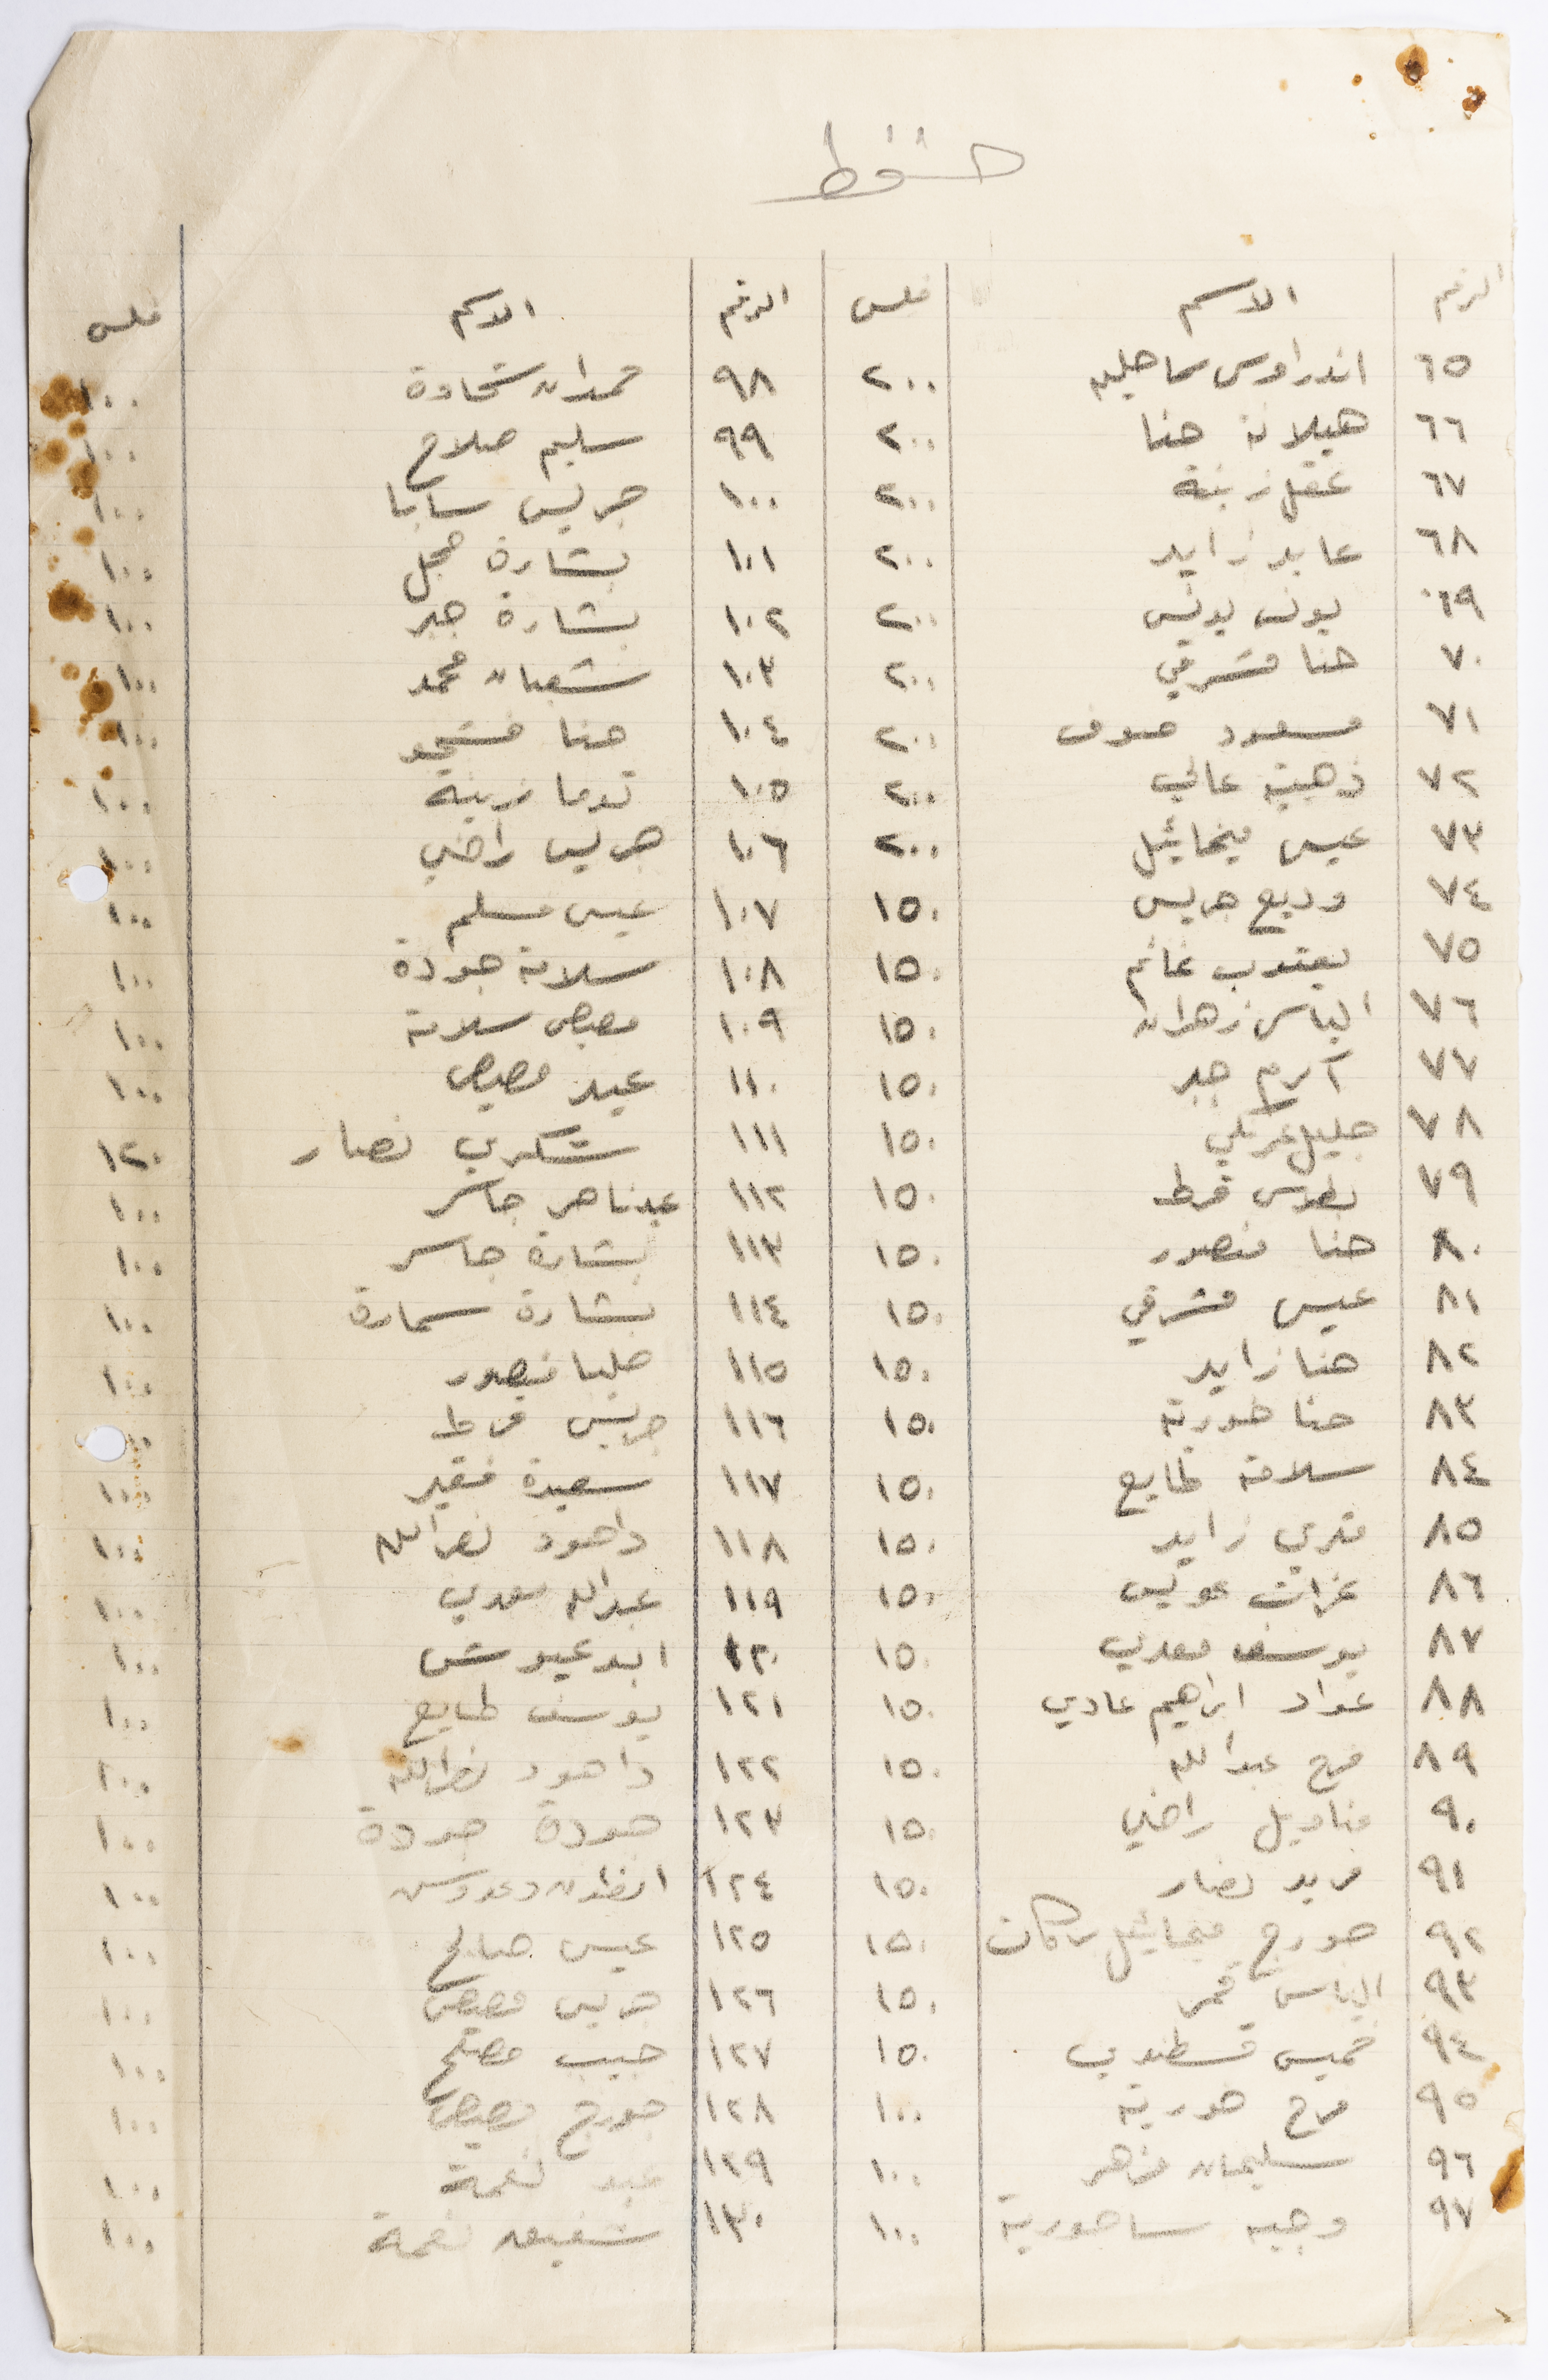 الرقم الاسم فلس الرقم الاسم فلس
٦٥ اندراوس ٢٠٠ ٩٨ حمدان شحادة ١٠٠
٦٦ هيلانة حنا ٢٠٠ ٩٩ سليم صلاح ١٠٠
٦٧ عقل زينة ٢٠٠ ١٠٠ جريس سابا ١٠٠
٦٨ عابد زايد ٢٠٠ ١٠١ بشارة حجل ١٠٠
٦٩ يونس يونس ٢٠٠ ١٠٢ بشارة جبر ١٠٠
٧٠ حنا مشرقي ٢٠٠ ١٠٣ شعبان محمد ١٠٠
٧١ مسعود صوف ٢٠٠ ١٠٤ حنا ١٠٠
٧٢ ذهبية عالي ٢٠٠ ١٠٥ توما زينة ١٠٠
٧٣ عيسى ميخائيل ٢٠٠ ١٠٦ جريس راضي ١٠٠
٧٤ وديع جريس ١٥٠ ١٠٧ عيسى مسلم ١٠٠
٧٥ يعقوب غانم ١٥٠ ١٠٨ سلامة جودة ١٠٠
٧٦ الياس زهران ١٥٠ ١٠٩ مصيص سلامة ١٠٠
٧٧ آرم جبر ١٥٠ ١١٠ عيد مصيص ١٠٠
٧٨ جليل ١٥٠ ١١١ شكري نصار ١٢٠
٧٩ بطرس قرط ١٥٠ ١١٢ جاسر ١٠٠
٨٠ حنا منصور ١٥٠ ١١٣ بشارة جاسر ١٠٠
٨١ عيسى مشرقي ١٥٠ ١١٤ بشارة سمارة ١٠٠
٨٢ حنا زايد ١٥٠ ١١٥ منصور ١٠٠
٨٣ حنا حورية ١٥٠ ١١٦ جريس قرط
٨٤ سلامة طايع ١٥٠ ١١٧ سعيدة فقير ١٠٠
٨٥ قدري زايد ١٥٠ ١١٨ داهود نصرالله ١٠٠
٨٦ عويس ١٥٠ ١١٩ عبدالله سعدي ١٠٠
٨٧ يوسف سعدي ١٥٠ ١٢٠ ابو عيوش ١٠٠
٨٨ عواد ابراهيم عادي ١٥٠ ١٢١ يوسف طايع ١٠٠
٨٩ فرح عبدالله ١٥٠ ١٢٢ داهود نصرالله ١٠٠
٩٠ مناويل راضي ١٥٠ ١٢٣ جودة جودة ١٠٠
٩١ فريد نصار ١٥٠ ١٢٤ انطون دعدوس ١٠٠
٩٢ جورج ميخائيل بركات ١٥٠ ١٢٥ عيسى صالح ١٠٠
٩٣ الياس قمر ١٥٠ ١٢٦ جريس مصيص ١٠٠
٩٤ خميس قسطندي ١٥٠ ١٢٧ حبيب مصلح ١٠٠
٩٥ فرح حورية ١٠٠ ١٢٨ جورج مصيص ١٠٠
٩٦ سليمان مزهر ١٠٠ ١٢٩ عيد نعمة ١٠٠
٩٧ وجيه ساحورية ١٠٠ ١٣٠ شفيق نعمة ١٠٠